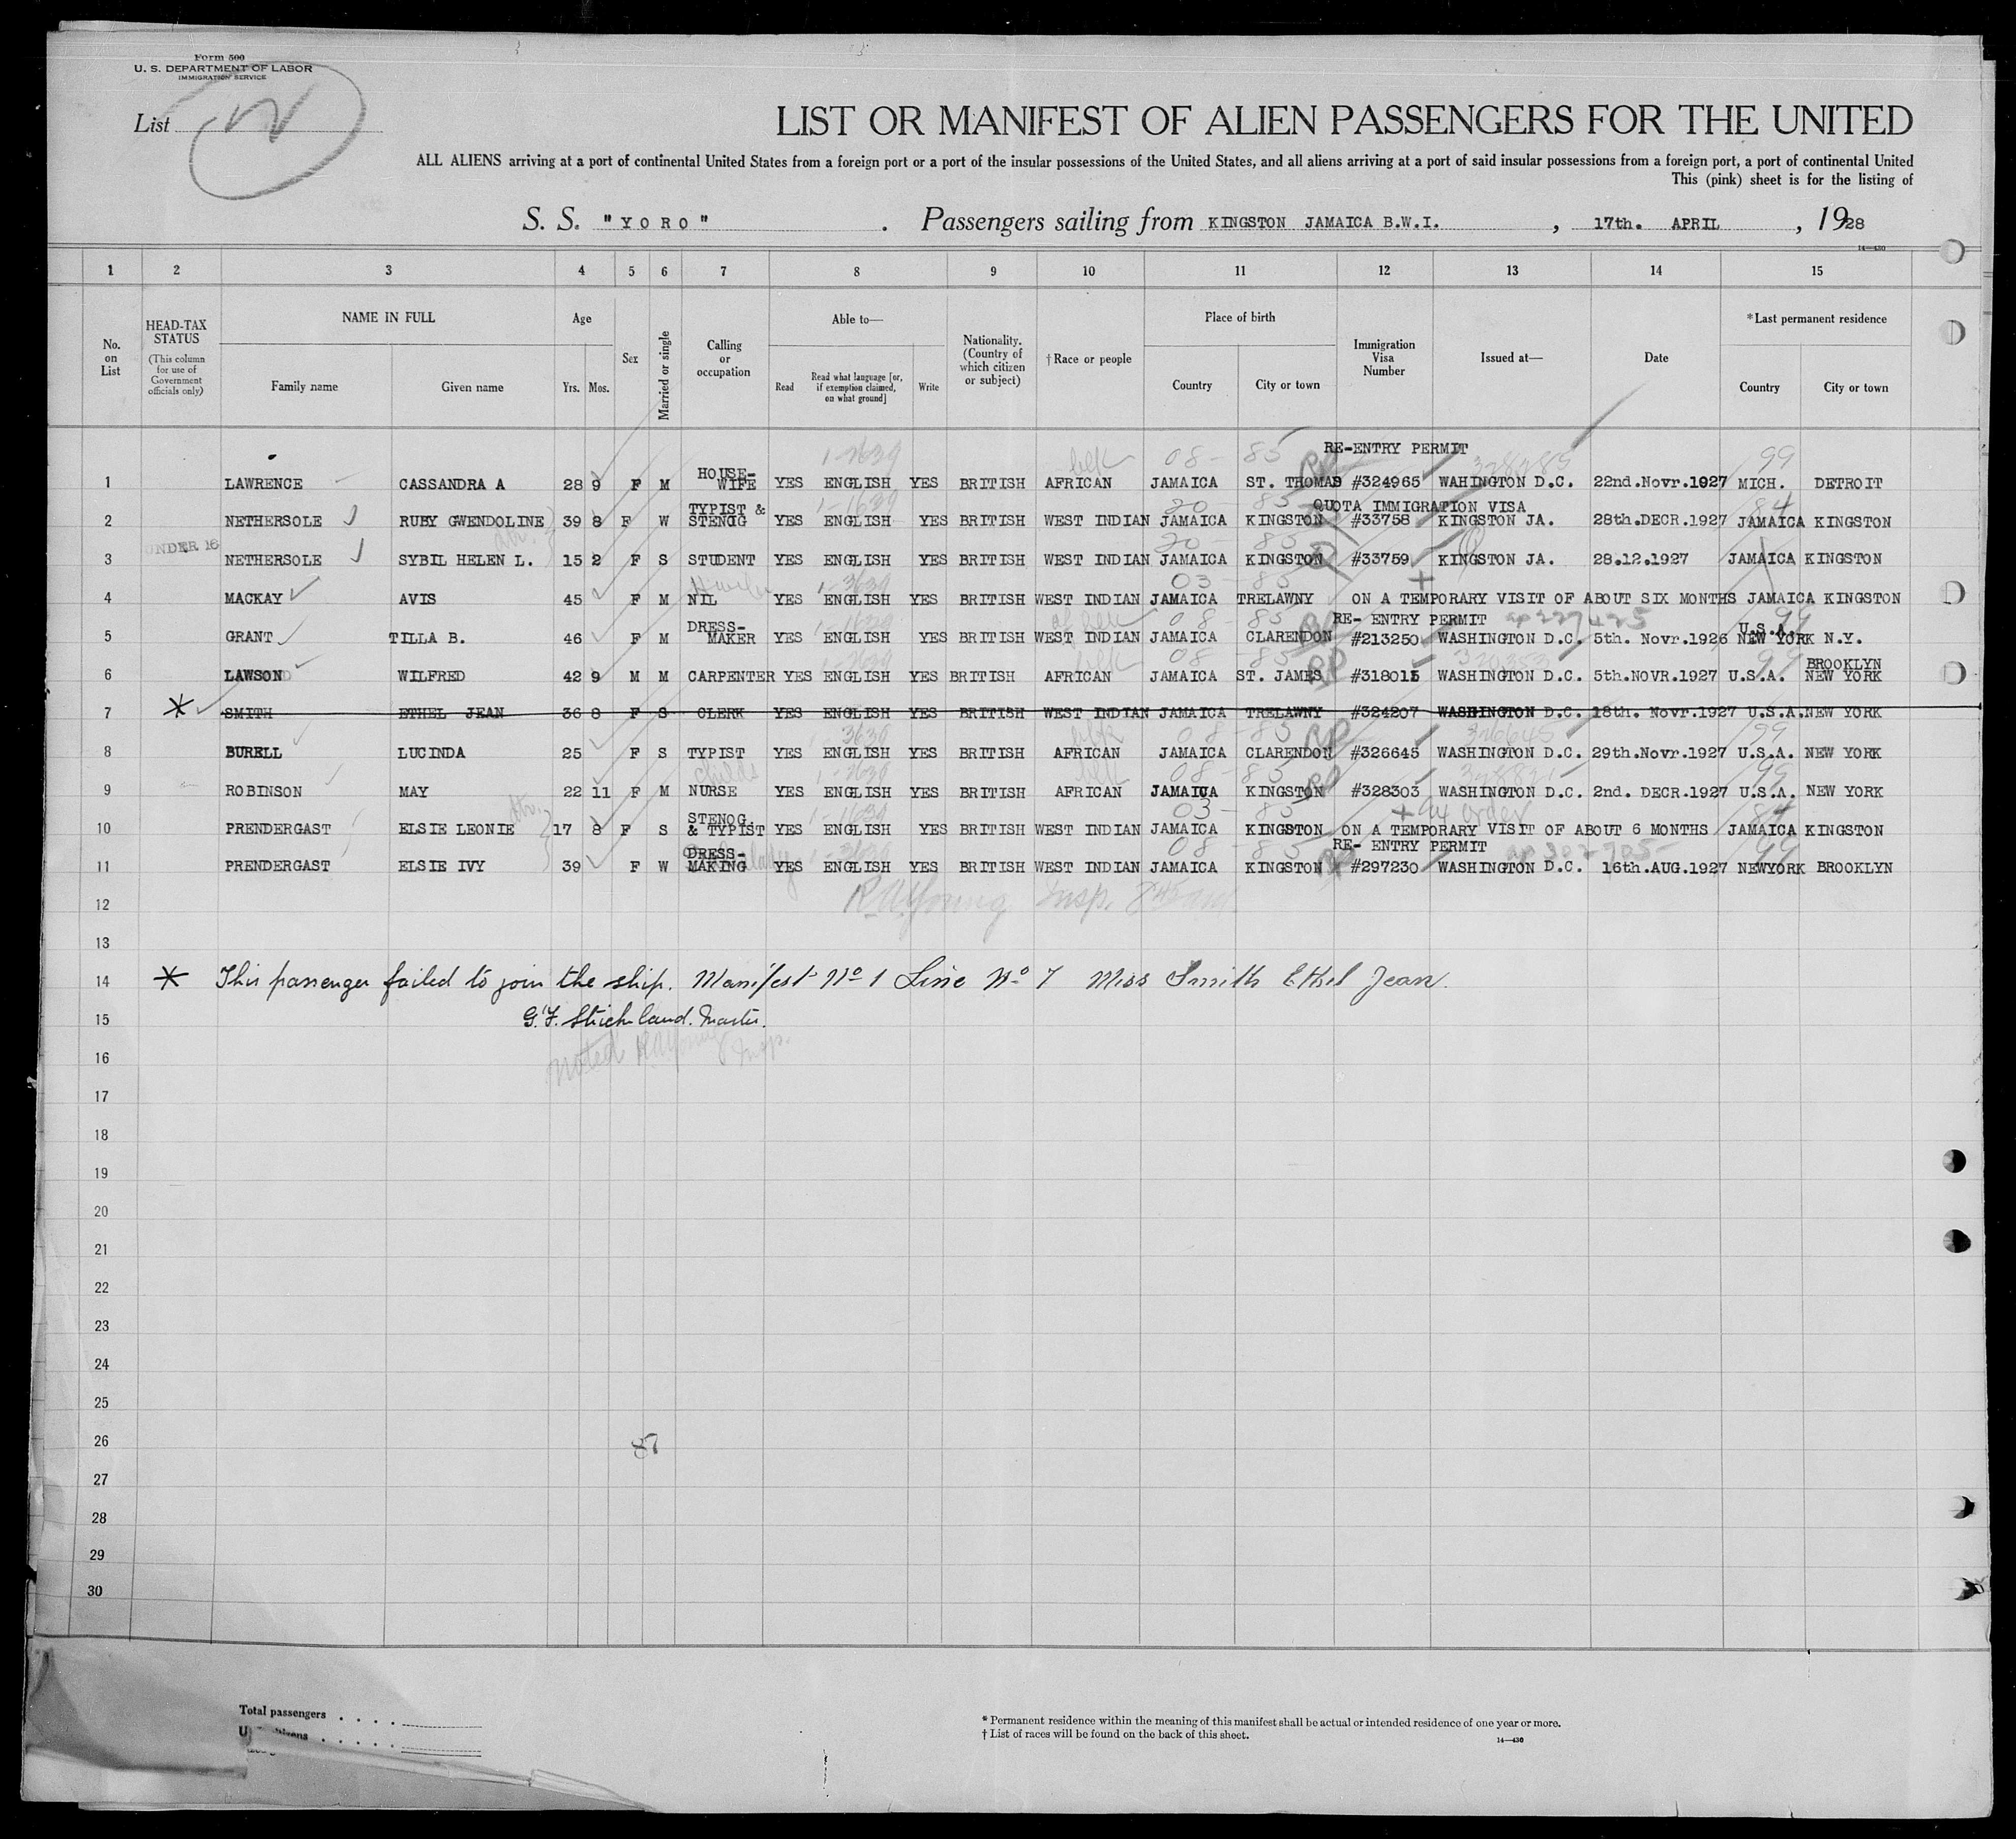 Form 500
U. S. DEPARTMENT OF LABOR
IMMIGRATION SERVICE
List
LIST OR MANIFEST OF ALIEN PASSENGERS FOR THE UNITED
ALL ALIENS arriving at a port of continental United States from a foreign port or a port of the insular possessions of the United States, and all aliens arriving at a port of said insular possessions from a foreign port, a port of continental United
This (pink) sheet is for the listing of
S. S. "YORO". Passengers sailing from KINGSTON JAMAICA B.W.I., 17th. APRIL, 1928
14—430
1 2 3 4 5 6 7 8 9 10 11 12 13 14 15
No. on List
HEAD-TAX STATUS
(This column for use of Government officials only)
NAME IN FULL
Family name Given name
Age
Yrs. Mos.
Sex
Married or single
Calling or occupation
Able to—
Read
Read what language [or, if exemption claimed, on what ground]
Write
Nationality. (Country of which citizen or subject)
†Race or people
Place of birth
Country City or town
Immigration Visa Number
Issued at—
Date
*Last permanent residence
Country City or town
1-2639 blk 08- 85 RE-ENTRY PERMIT 99
1 LAWRENCE CASSANDRA A 28 9 F M HOUSE-WIFE YES ENGLISH YES BRITISH AFRICAN JAMAICA ST. THOMAS #324965 WAHINGTON D.C. 22nd.Novr.1927 MICH. DETROIT
1-1639 20- 85 QUOTA IMMIGRATION VISA 84
2 NETHERSOLE RUBY GWENDOLINE 39 8 F W TYPIST & STENOG YES ENGLISH YES BRITISH WEST INDIAN JAMAICA KINGSTON #33758 KINGSTON JA. 28th.DECR.1927 JAMAICA KINGSTON
UNDER 16 20- 85
3 NETHERSOLE SYBIL HELEN L. 15 2 F S STUDENT YES ENGLISH YES BRITISH WEST INDIAN JAMAICA KINGSTON #33759 KINGSTON JA. 28.12.1927 JAMAICA KINGSTON
1-3639 03- 85
4 MACKAY AVIS 45 F M NIL YES ENGLISH YES BRITISH WEST INDIAN JAMAICA TRELAWNY ON A TEMPORARY VISIT OF ABOUT SIX MONTHS JAMAICA KINGSTON
1-1639 08- 85 RE- ENTRY PERMIT 99
5 GRANT TILLA B. 46 F M DRESS-MAKER YES ENGLISH YES BRITISH WEST INDIAN JAMAICA CLARENDON #213250 WASHINGTON D.C. 5th. Novr.1926 U.S.A. NEW YORK N.Y.
1-2639 blk 08 -85 RP 99
6 LAWSON WILFRED 42 9 M M CARPENTER YES ENGLISH YES BRITISH AFRICAN JAMAICA ST. JAMES #318015 WASHINGTON D.C. 5th.NOVR.1927 U.S.A. BROOKLYN NEW YORK
* 7 SMITH ETHEL JEAN 36 8 F S CLERK YES ENGLISH YES BRITISH WEST INDIAN JAMAICA TRELAWNY #324207 WASHINGTON D.C. 18th. Novr.1927 U.S.A. NEW YORK
3639 blk 08-85 RP 326645 99
8 BURELL LUCINDA 25 F S TYPIST YES ENGLISH YES BRITISH AFRICAN JAMAICA CLARENDON #326645 WASHINGTON D.C. 29th.Novr.1927 U.S.A. NEW YORK
childs 1-2639 blk 08- 85 RP 99
9 ROBINSON MAY 22 11 F M NURSE YES ENGLISH YES BRITISH AFRICAN JAMAICA KINGSTON #328303 WASHINGTON D.C. 2nd. DECR.1927 U.S.A. NEW YORK
1-1639 03- 85 84
10 PRENDERGAST ELSIE LEONIE 17 8 F S STENOG. & TYPIST YES ENGLISH YES BRITISH WEST INDIAN JAMAICA KINGSTON ON A TEMPORARY VISIT OF ABOUT 6 MONTHS JAMAICA KINGSTON
1-2639 08- 85 RE- ENTRY PERMIT 99
11 PRENDERGAST ELSIE IVY 39 F W DRESS-MAKING YES ENGLISH YES BRITISH WEST INDIAN JAMAICA KINGSTON #297230 WASHINGTON D.C. 16th.AUG.1927 NEWYORK BROOKLYN
12 Young Insp.
13
14 * This passenger failed to join the ship. Manifest No 1 Line No 7 Miss Smith Ethel Jean.
15 G.F. Strickland. Master.
16 noted Young Insp.
17
18
19
20
21
22
23
24
25
26 87
27
28
29
30
Total passengers
* Permanent residence within the meaning of this manifest shall be actual or intended residence of one year or more.
† List of races will be found on the back of this sheet.
14—430